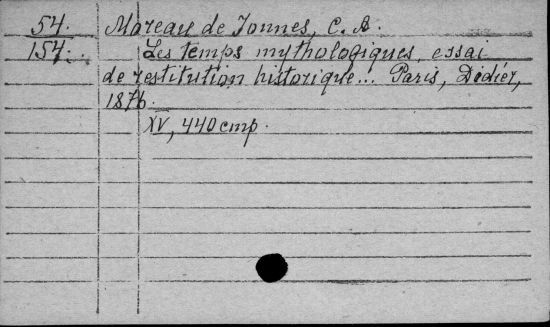 54. Moreau de Jonnes, C. A.
154. Les temps mythologiques, essai
de restitution historique... Paris, Didier,
1876.
XV, 440 cmp.